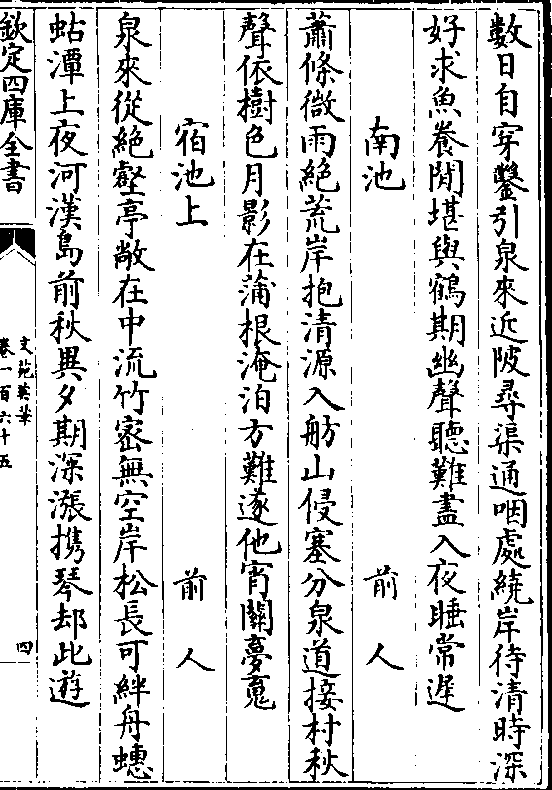 數日自穿鑿引泉來近陂尋渠通咽處繞岸待清時深
好求魚養閒堪與鶴期幽聲聽難盡入夜睡常遲
南池 前人
蕭條微雨絶荒岸抱清源入舫山侵塞分泉道接村秋
聲依樹色月影在蒲根淹泊方難遂他宵關夢䰟
宿池上 前人
泉來從絶壑亭敞在中流竹密無空岸松長可絆舟蟪
蛄潭上夜河漢島前秋異夕期深漲携琴却此遊
欽定四庫全書
文苑英華
卷一百六十五
四